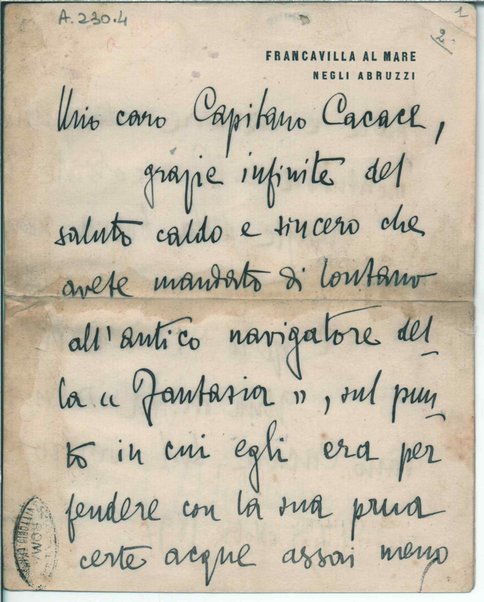 A.230.4
1
2.
FRANCAVILLA AL MARE
NEGLI ABRUZZI
Mio caro Capitano Cacace,
grazie infinite del
saluto caldo e sincero che
avete mandato di lontano
all'antico navigatore del-
la “Fantasia”, sul pun-
to in cui egli era per
fendere con la sua prua
certe acque assai meno